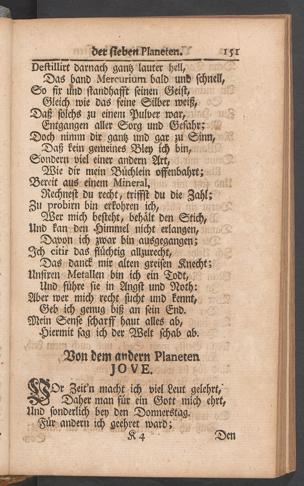 der sieben Planeten. 151
Destillirt darnach gantz lauter hell,
Das band Mercurium bald und schnell,
So fix und standhafft seinen Geist,
Gleich wie das feine Silber weiß,
Daß solchs zu einem Pulver war,
Entgangen aller Sorg und Gefahr;
Doch nimm dir gantz und gar zu Sinn,
Daß kein gemeines Bley ich bin,
Sondern viel einer andern Art,
Wie dir mein Büchlein offenbahrt;
Bereit aus einem Mineral,
Rechnest du recht, triffst du die Zahl;
Zu probirn bin erkohren ich,
Wer mich besteht, behält den Stich,
Und kan den Himmel nicht erlangen,
Davon ich zwar bin ausgegangen;
Ich citir das flüchtig allzurecht,
Das dunck mir alten greisen Knecht;
Unsiren Metallen bin ich ein Todt,
Und führe sie in Angst und Noth:
Aber wer mich recht sucht und kennt,
Geb ich genug biß an sein End.
Mein Sense scharff haut alles ab,
Hiermit sag ich der Welt schab ab.
Von dem andern Planeten
JOVE.
VOr Zeit'n macht ich viel Leut gelehrt,
Daher man für ein Gott mich ehrt,
Und sonderlich bey den Donnerstag.
Für andern ich geehret ward;
K 4 Den